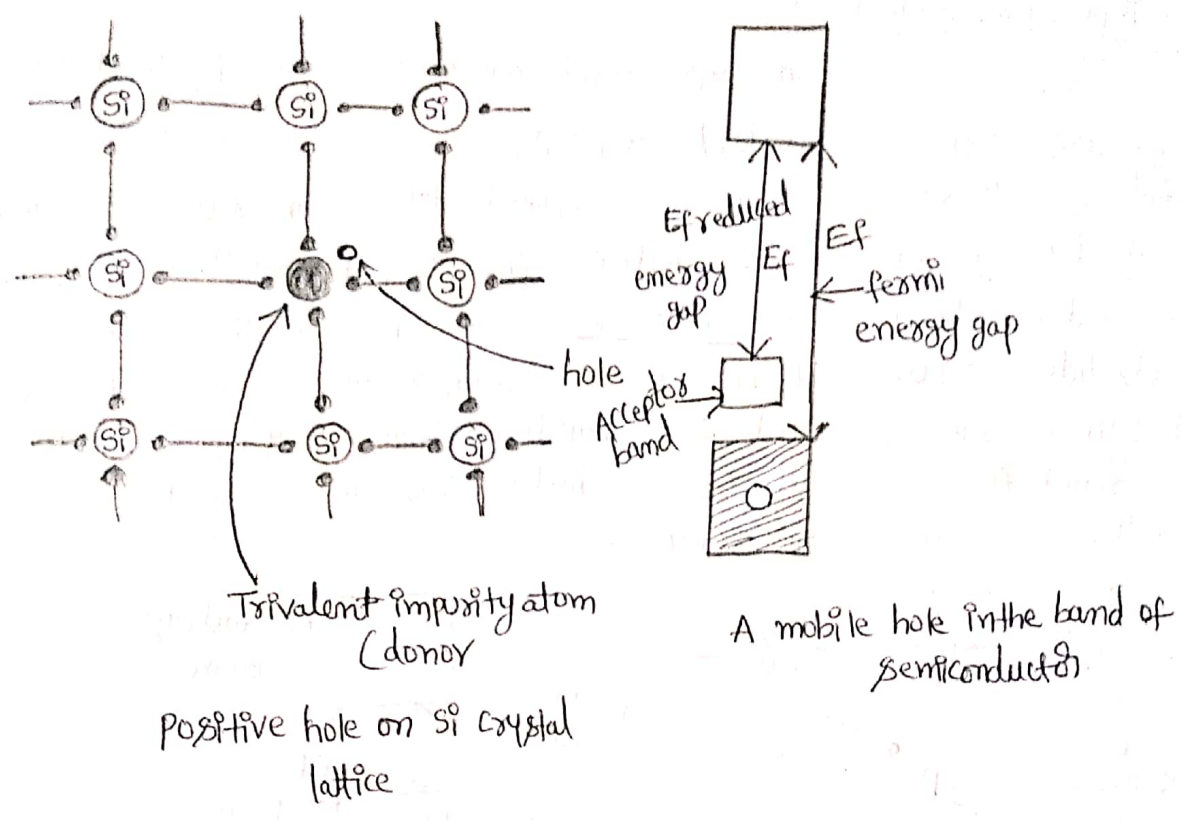 Si Si Si
Si Si
Si Si Si
hole
Trivalent impurity atom
(donor
Positive hole on Si crystal
lattice
Ef reduced
energy
gap
Ef
Ef
fermi
energy gap
Acceptor
band
A mobile hole in the band of
semiconductor